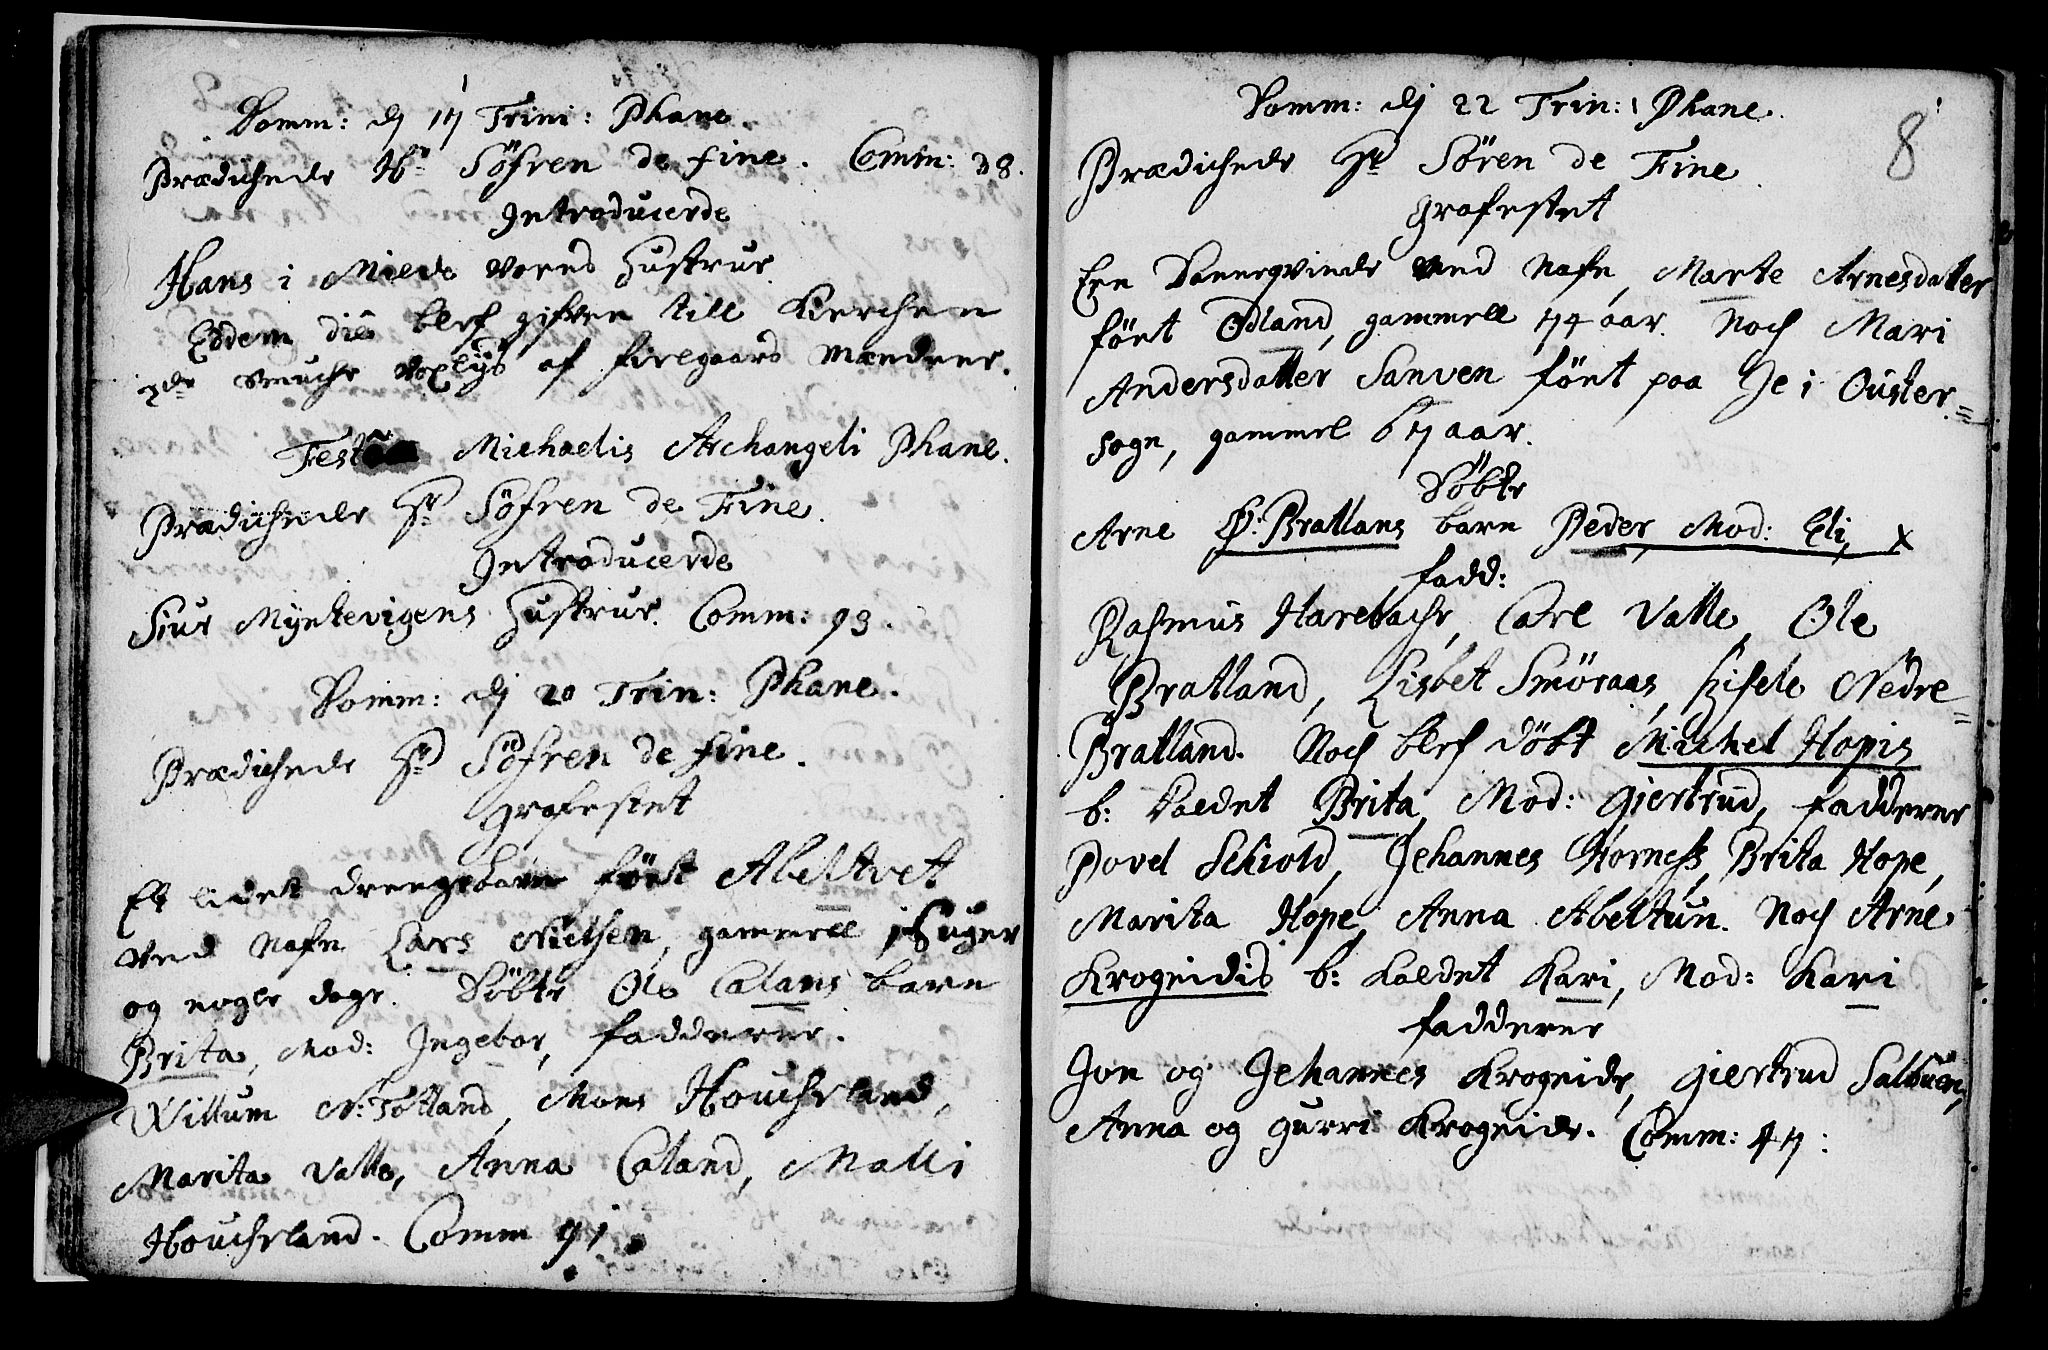 Domm: dj 17 Trini: Phane.
Prædichede Hr Söfren de fine. Comm: 38.
Introducerde
Hans i Milde vores Hustrue
Eodem die blef gifven till Kierchen
2de smuche voxlys af firegaards Mændene.
Fest Michaelis Archangeli Phane.
Prædichede Hr Söfren de Fine.
Introducerde
Siur Myntevigens Hustrue. Comm: 93.
Domm: dj 20 Trin: Phane.
Prædichede Hr Söfren de fine.
Grafestet
Et lidet drengebarn födt Abeltvet
ved nafn Lars Nielsen, gammell uger
og nogle dage. Döbte Ole Calans barn
Brita, Mod: Ingebor, fadderne.
Willum N: Totland, Mons Houchland,
Marita Valle, Anna Caland, Malli
Houchland. Comm 91.
Domm: dj 22 Trin: Phane.
8
Prædichede Hr Sören de Fine.
Grafestet
Een Danneqvinde ved nafn Marte Arnesdatter
födt Ödland, gammell 74 aar. Noch Mari
Andersdatter Sanven födt paa Je i Ouster=
sogn, gammel 67 aar.
Döbte
Arne Ø: Bratlans barn Peder, Mod: Eli, x
fadd:
Rasmus Harebache, Carl Valle, Ole
Bratland, Lisbet Smöraas, Zisele Nedre=
Bratland. Noch blef döbt Michel Hopis
b: kaldet Brita, Mod: Giertrud, fadderne
Povel Schiold, Jehannes Horness, Brita Hope,
Marita Hope, Anna Abeltun. Noch Arne
Krogeidis b: kaldet Kari, Mod: Kari
fadderne
Jon og Jehannes Krogeide, Giertrud Salbuen,
Anna og Gurri Krogeide. Comm: 47: